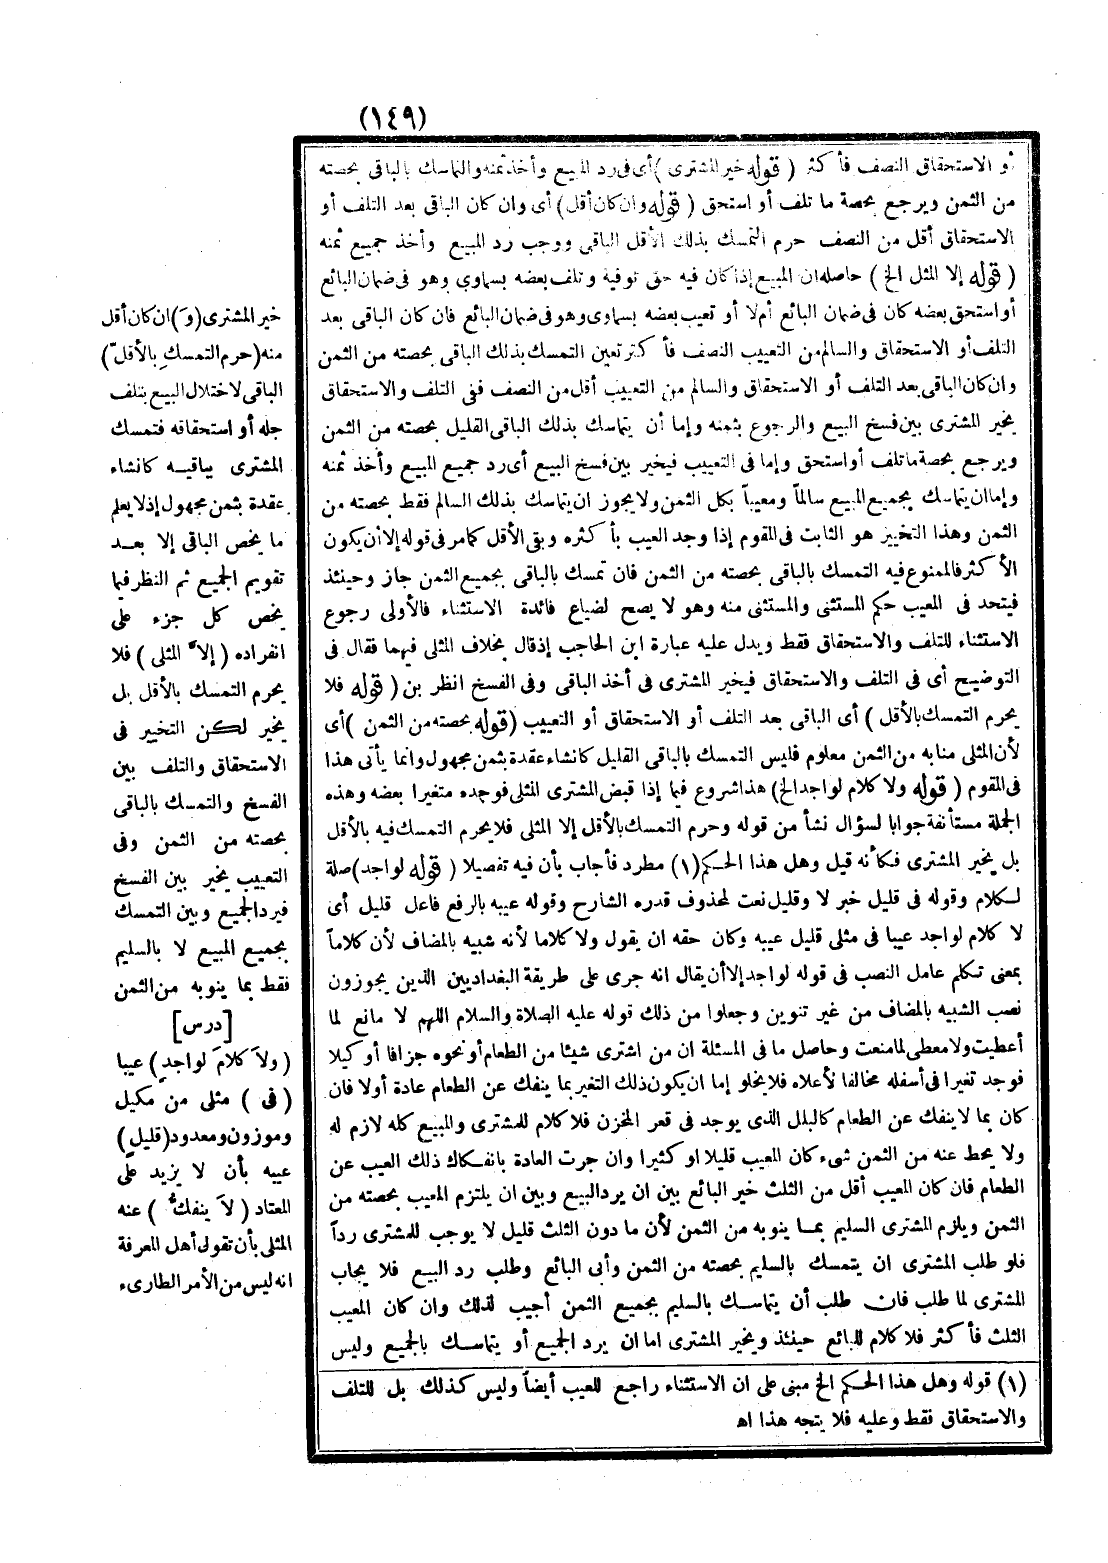 (١٤٩)
أو الاستحقاق النصف فأكثر ( قوله خير المشترى ) أى فى رد المبيع وأخذ ثمنه والتماسك بالباقى بحصته
من الثمن ويرجع بحصة ما تلف أو استحق ( قوله وان كان أقل ) أى وان كان الباقى بعد التلف أو
الاستحقاق أقل من النصف حرم التمسك بذلك الأقل الباقى ووجب رد المبيع وأخذ جميع ثمنه
( قوله إلا المثل الخ ) حاصله ان المبيع إذا كان فيه حق توفية وتلف بعضه بسماوى وهو فى ضمان البائع
أو استحق بعضه كان فى ضمان البائع أم لا أو تعيب بعضه بسماوى وهو فى ضمان البائع فان كان الباقى بعد
التلف أو الاستحقاق والسالم من التعييب النصف فأكثر تعين التمسك بذلك الباقى بحصته من الثمن
وان كان الباقى بعد التلف أو الاستحقاق والسالم من التعييب أقل من النصف ففى التلف والاستحقاق
يخير المشترى بين فسخ البيع والرجوع بثمنه وإما أن يتماسك بذلك الباقى القليل بحصته من الثمن
ويرجع بحصة ما تلف أو استحق وإما فى التعييب فيخير بين فسخ البيع أى رد جميع المبيع وأخذ ثمنه
وإما ان يتماسك بجميع المبيع سالماً ومعيباً بكل الثمن ولا يجوز ان يتماسك بذلك السالم فقط بحصته من
الثمن وهذا التخيير هو الثابت فى المقوم إذا وجد العيب بأكثره وبقى الأقل كما مر فى قوله إلا أن يكون
الأكثر فالممنوع فيه التمسك بالباقى بحصته من الثمن فان تمسك بالباقى بجميع الثمن جاز وحينئذ
فيتحد فى المعيب حكم المستثنى والمستثنى منه وهو لا يصح لضياع فائدة الاستثناء فالأولى رجوع
الاستثناء للتلف والاستحقاق فقط ويدل عليه عبارة ابن الحاجب إذ قال بخلاف المثلى فيهما فقال فى
التوضيح أى فى التلف والاستحقاق فيخير المشترى فى أخذ الباقى وفى الفسخ انظر بن ( قوله فلا
يحرم التمسك بالأقل ) أى الباقى بعد التلف أو الاستحقاق أو التعييب ( قوله بحصته من الثمن ) أى
لأن المثلى منابه من الثمن معلوم فليس التمسك بالباقى القليل كانشاء عقدة بثمن مجهول وانما يأتى هذا
فى المقوم ( قوله ولا كلام لواجد الخ ) هذا شروع فيما إذا قبض المشترى المثلى فوجده متغيرا بعضه وهذه
الجملة مستأنفة جوابا لسؤال نشأ من قوله وحرم التمسك بالأقل إلا المثلى فلا يحرم التمسك فيه بالأقل
بل يخير المشترى فكأنه قيل وهل هذا الحكم (١) مطرد فأجاب بأن فيه تفصيلا ( قوله لواجد ) صلة
لكلام وقوله فى قليل خبر لا وقليل نعت لمحذوف قدره الشارح وقوله عيبه بالرفع فاعل قليل أى
لا كلام لواجد عيبا فى مثلى قليل عيبه وكان حقه ان يقول ولا كلاما لأنه شبيه بالمضاف لأن كلاماً
بمعنى تكلم عامل النصب فى قوله لواجد إلا أن يقال انه جرى على طريقة البغداديين الذين يجوزون
نصب الشبيه بالمضاف من غير تنوين وجعلوا من ذلك قوله عليه الصلاة والسلام اللهم لا مانع لما
أعطيت ولا معطى لما منعت وحاصل ما فى المسئلة ان من اشترى شيئا من الطعام أو نحوه جزافا أو كيلا
فوجد تغيرا فى أسفله مخالفا لأعلاه فلا يخلو إما ان يكون ذلك التغير بما ينفك عن الطعام عادة أولا فان
كان بما لا ينفك عن الطعام كالبلل الذى يوجد فى قعر المخزن فلا كلام للمشترى والمبيع كله لازم له
ولا يحط عنه من الثمن شىء كان المعيب قليلا او كثيرا وان جرت العادة بانفكاك ذلك العيب عن
الطعام فان كان المعيب أقل من الثلث خير البائع بين ان يرد البيع وبين ان يلتزم المعيب بحصته من
الثمن ويلزم المشترى السليم بما ينوبه من الثمن لأن ما دون الثلث قليل لا يوجب للمشترى رداً
فلو طلب المشترى ان يتمسك بالسليم بحصته من الثمن وأبى البائع وطلب رد البيع فلا يجاب
المشترى لما طلب فان طلب أن يتماسك بالسليم بجميع الثمن أجيب لذلك وان كان المعيب
الثلث فأكثر فلا كلام للبائع حينئذ ويخير المشترى اما ان يرد الجميع أو يتماسك بالجميع وليس
(١) قوله وهل هذا الحكم الخ مبنى على ان الاستثناء راجع للعيب أيضاً وليس كذلك بل للتلف
والاستحقاق فقط وعليه فلا يتجه هذا اه
خير المشترى (وَ) ان كان أقل
منه (حرم التمسك بالأقلّ)
الباقى لاختلال البيع بتلف
جله أو استحقاقه فتمسك
المشترى بباقيه كانشاء
عقدة بثمن مجهول إذ لا يعلم
ما يخص الباقى إلا بعد
تقويم الجميع ثم النظر فيما
يخص كل جزء على
انفراده ( إلا المثلى ) فلا
يحرم التمسك بالأقل بل
يخير لكن التخيير فى
الاستحقاق والتلف بين
الفسخ والتمسك بالباقى
بحصته من الثمن وفى
التعييب يخير بين الفسخ
فيرد الجميع وبين التمسك
بجميع المبيع لا بالسليم
فقط بما ينوبه من الثمن
[درس]
( ولاَ كلامَ لواجدٍ ) عيبا
( فى ) مثلى من مكيل
وموزون ومعدود (قليلٍ)
عيبه بأن لا يزيد على
المعتاد ( لاَ ينفكُّ ) عنه
المثلى بأن تقول أهل المعرفة
انه ليس من الأمر الطارىء